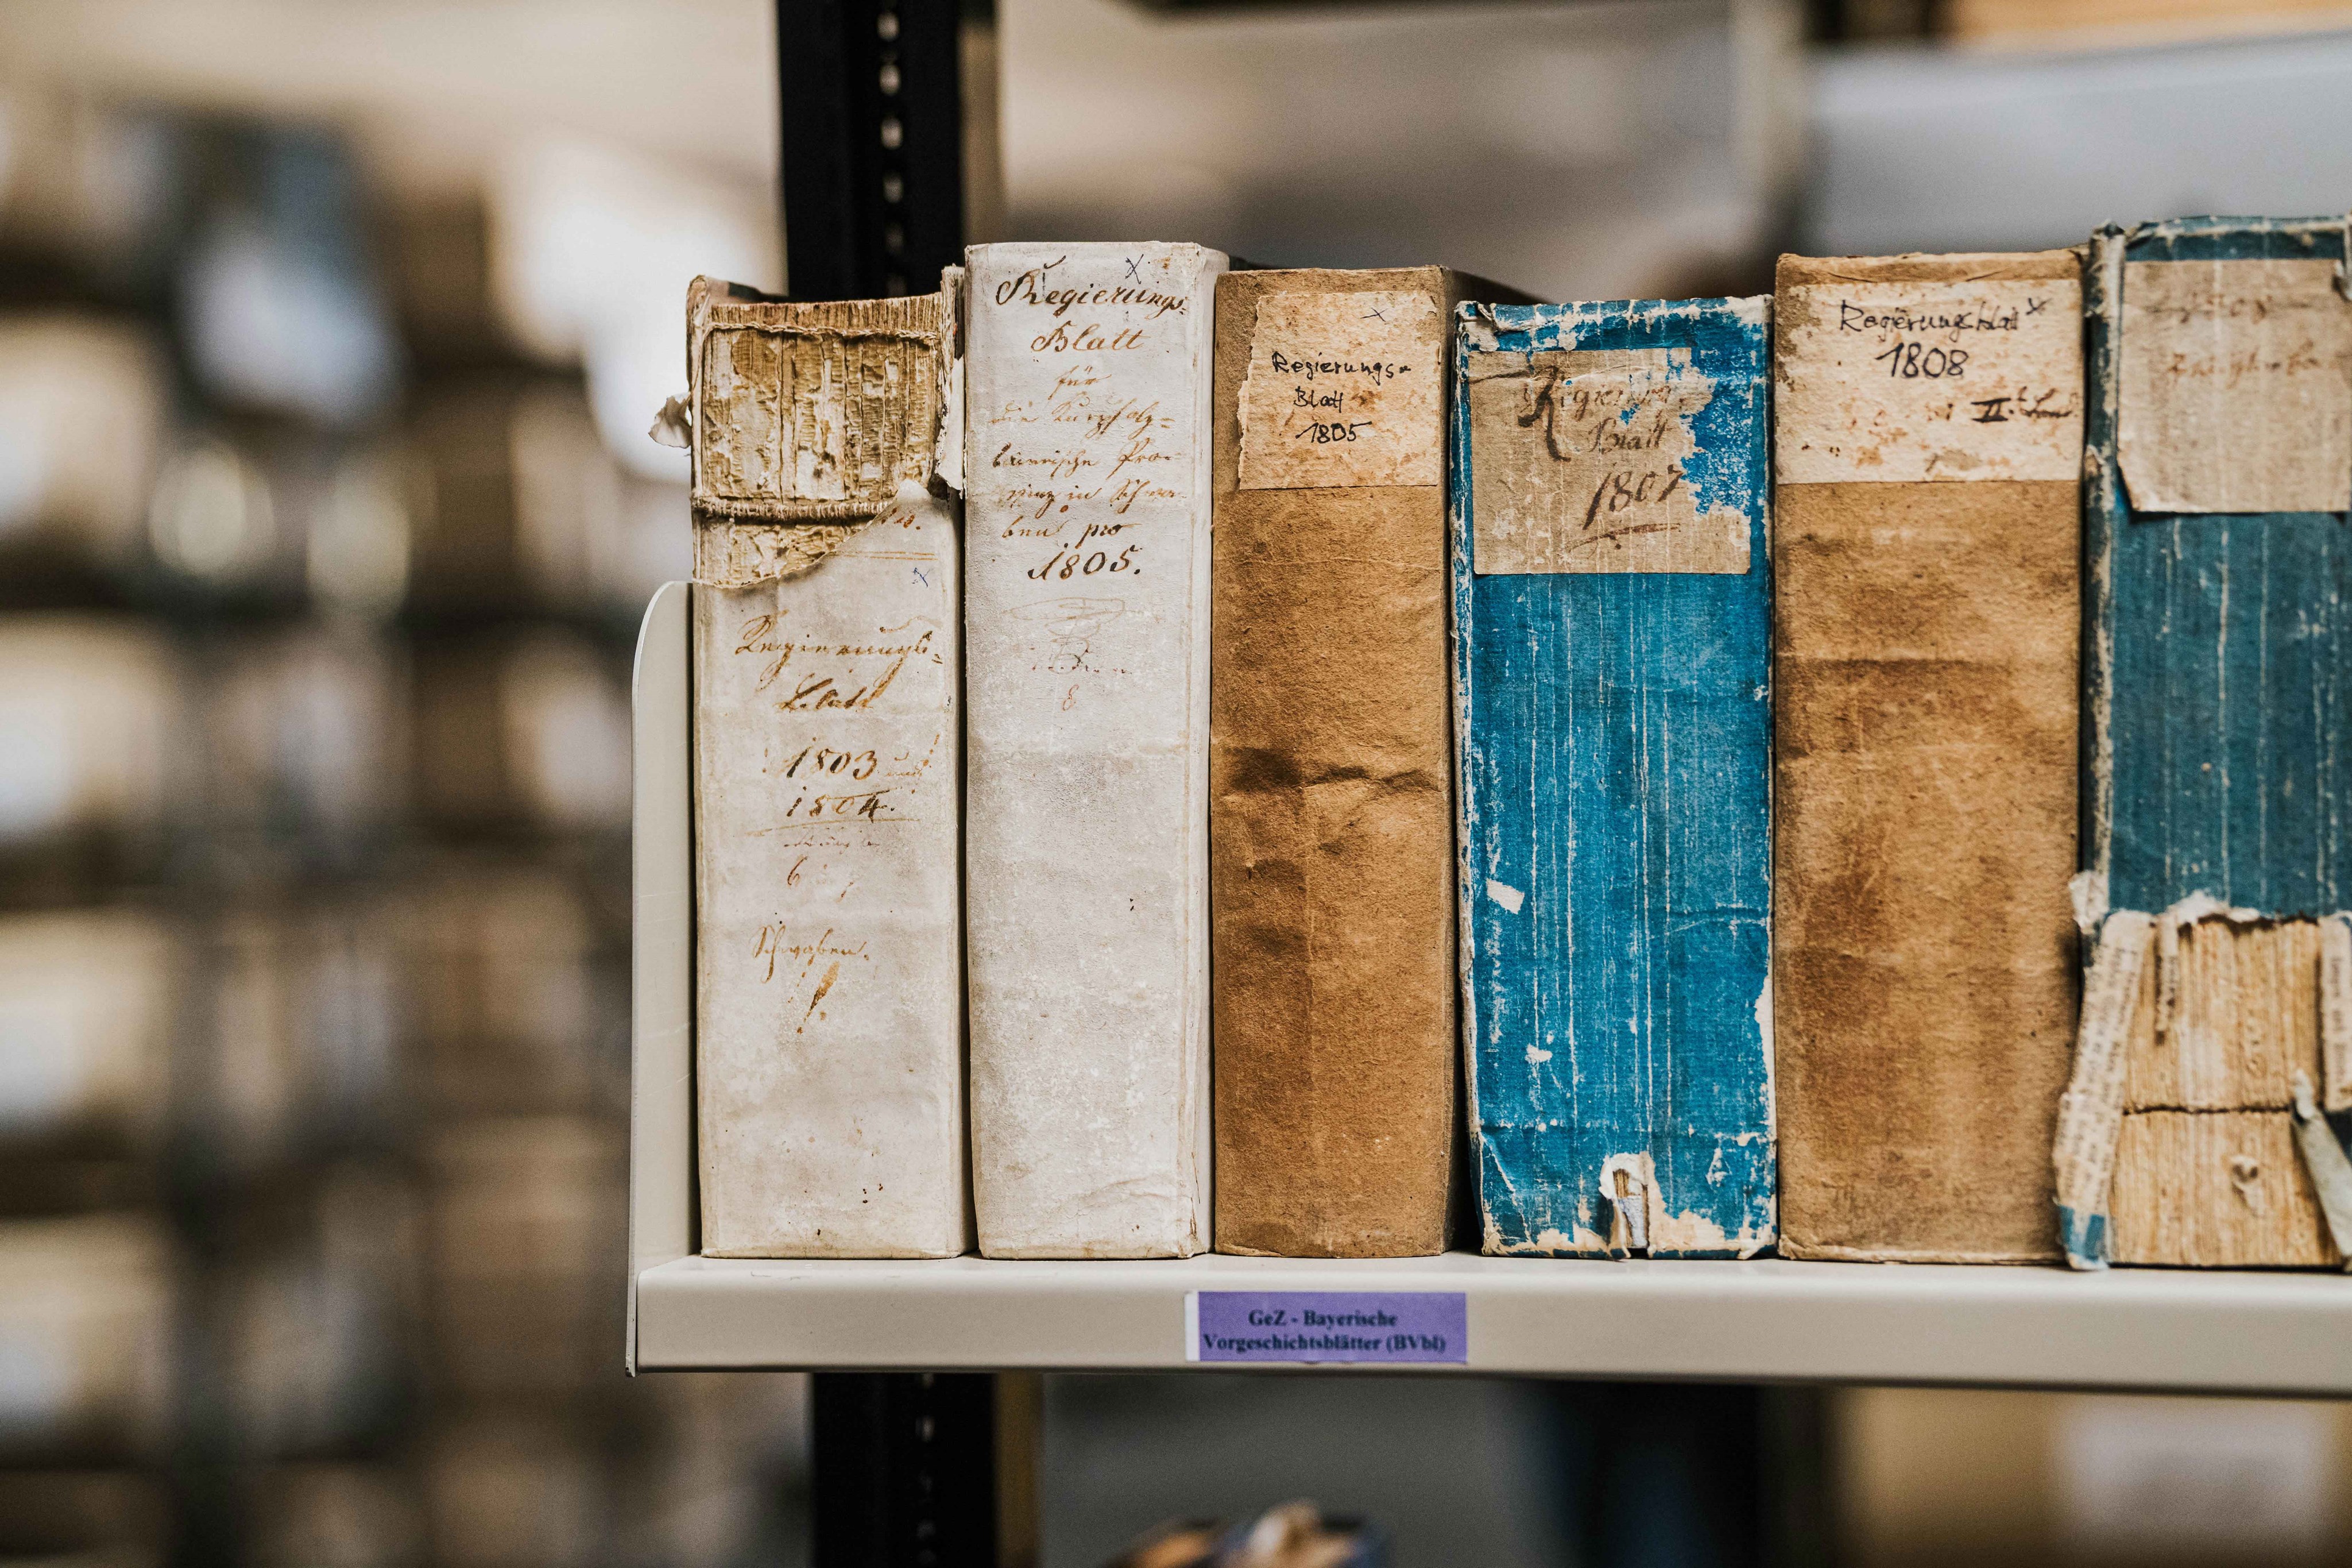 Regierungs-
Blatt
1803 und
1804.
Schwaben.
Regierungs-
Blatt
für
die Kurpfalz-
baierische Pro-
vinz in Schwa-
ben pro
1805.
Regierungs-
Blatt
1805
Regierungs
Blatt
1807
Regierungsblatt
1808
II.
1808
GeZ - Bayerische
Vorgeschichtsblätter (BVbl)